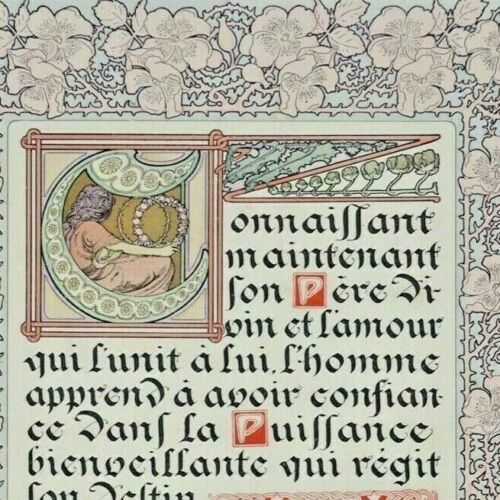 Connaissant
maintenant
son Père Di-
vin et l'amour
qui l'unit à lui, l'homme
apprend à avoir confian-
ce dans la Puissance
bienveillante qui régit
son destin